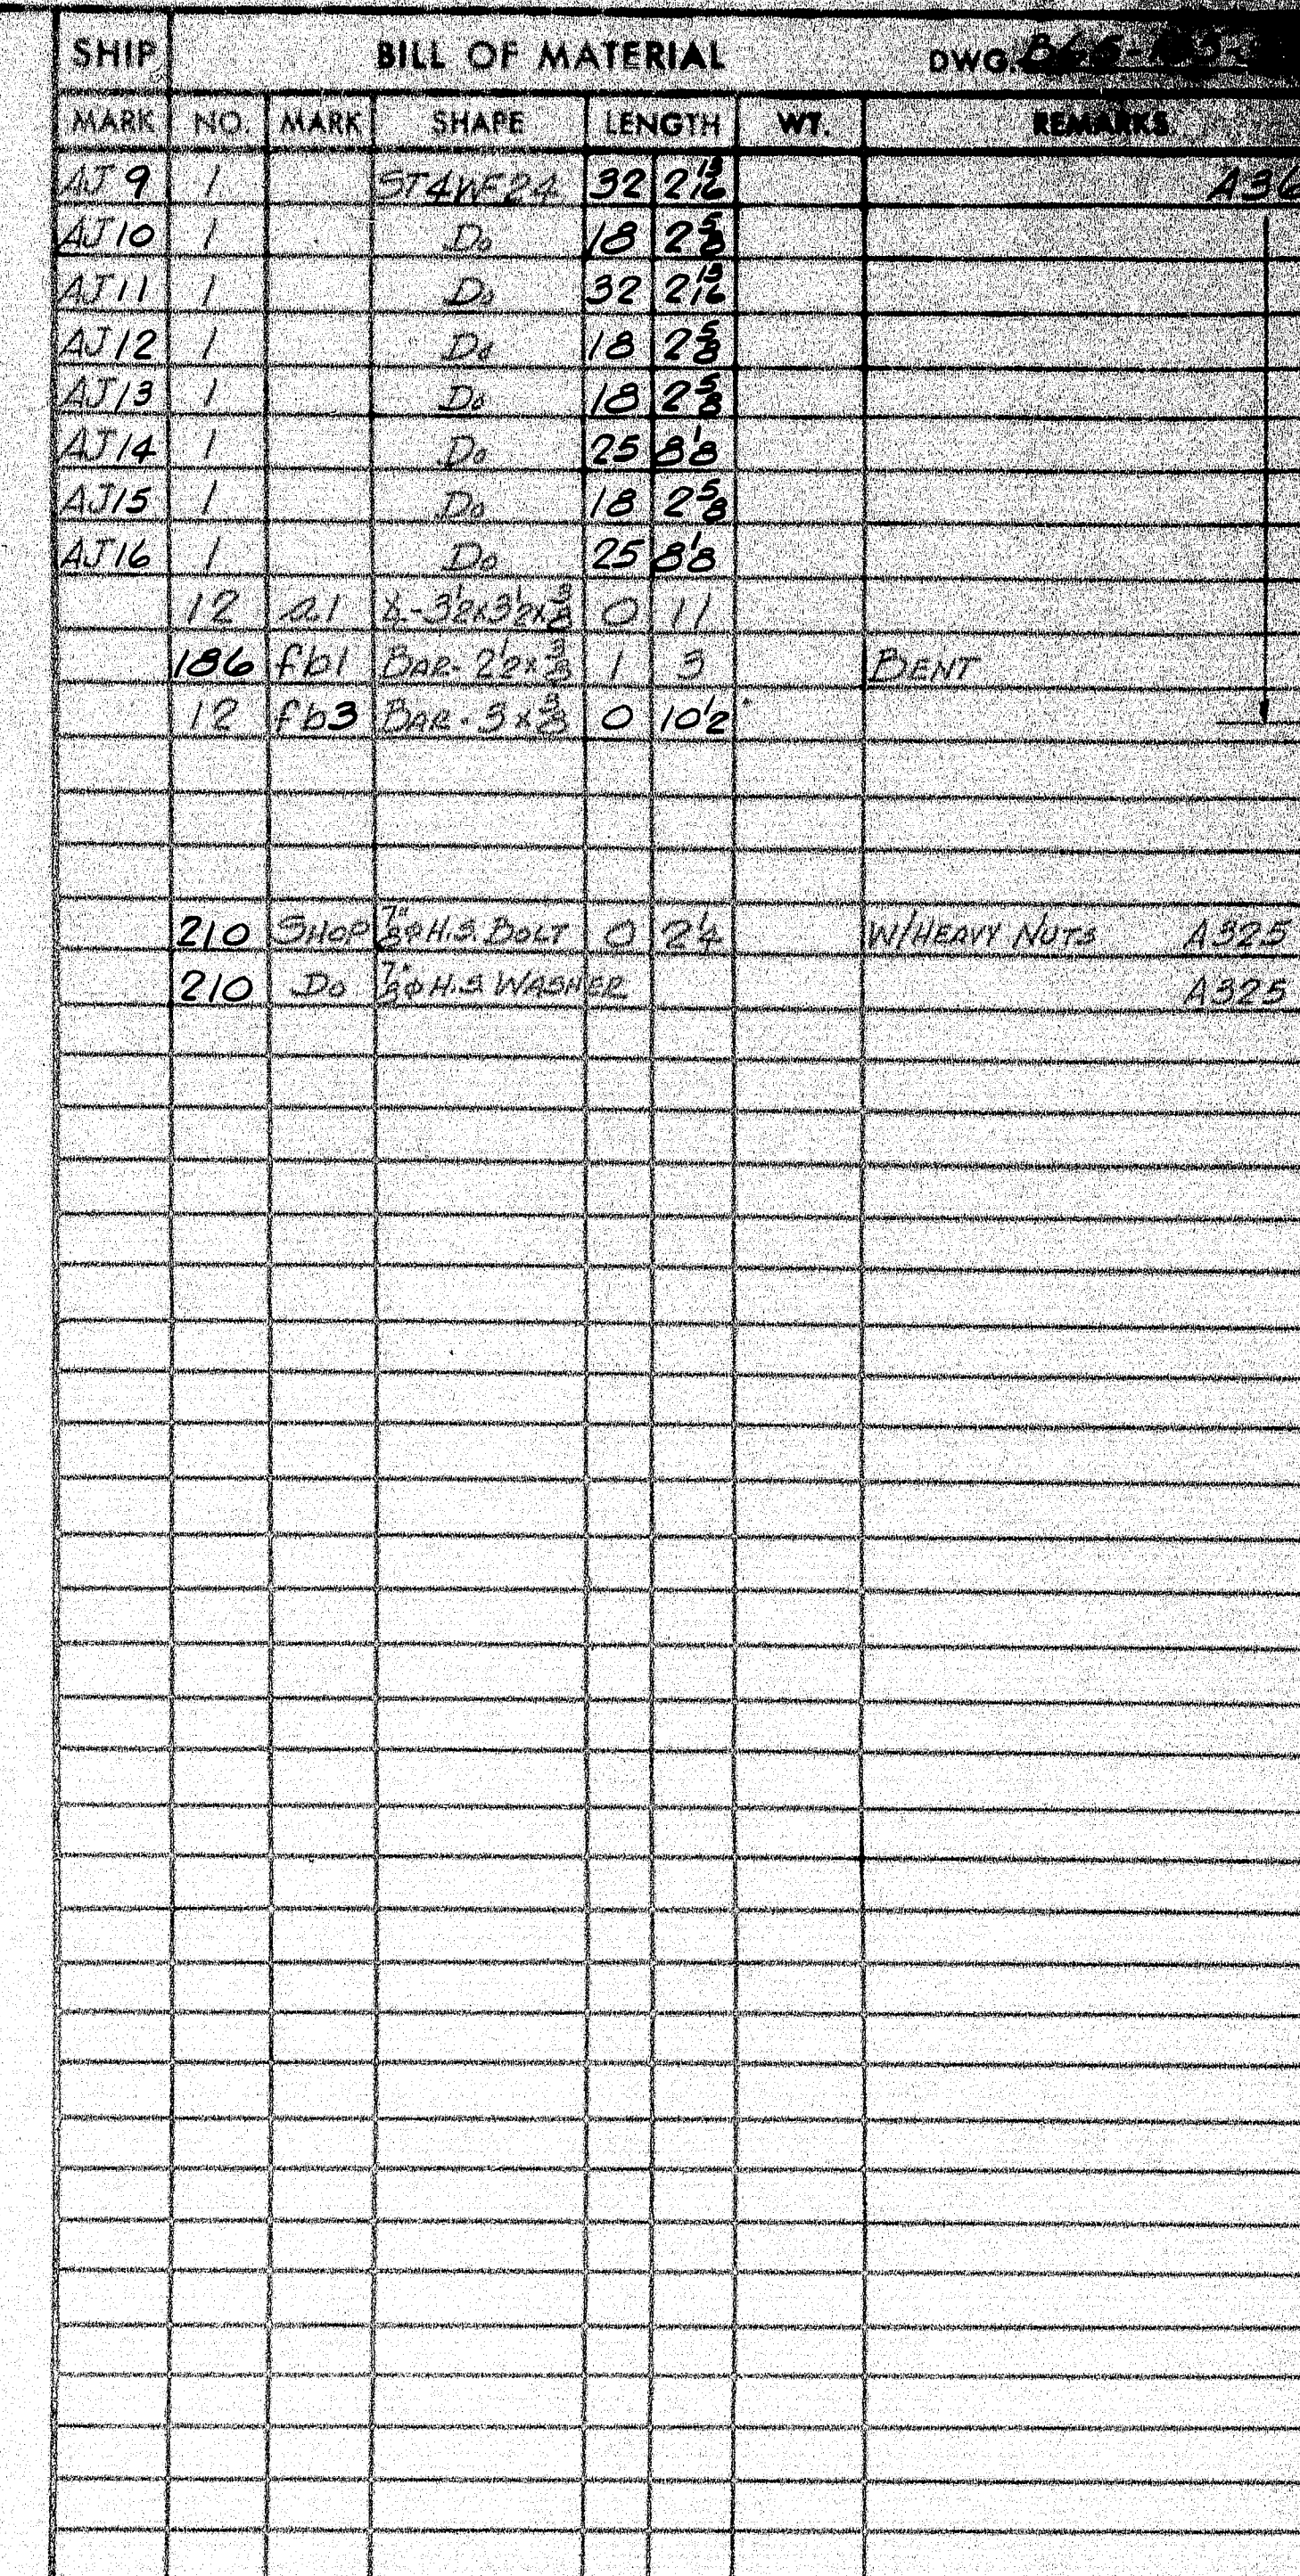 SHIP BILL OF MATERIAL DWG.
MARK NO. MARK SHAPE LENGTH WT. REMARKS
AJ 9 1 ST4WF24 32 2 13/16 A36
AJ10 1 Do 18 2 5/8
AJ11 1 Do 32 2 13/16
AJ12 1 Do 18 2 5/8
AJ13 1 Do 18 2 5/8
AJ14 1 Do 25 8 1/8
AJ15 1 Do 18 2 5/8
AJ16 1 Do 25 8 1/8
12 a1 ∠-3 1/2x3 1/2x3/8 0 11
186 fb1 BAR-2 1/2x3/8 1 3 BENT
12 fb3 BAR-3x3/8 0 10 1/2
210 SHOP 7/8"φ H.S. BOLT 0 2 1/4 W/HEAVY NUTS A325
210 Do 7/8"φ H.S. WASHER A325